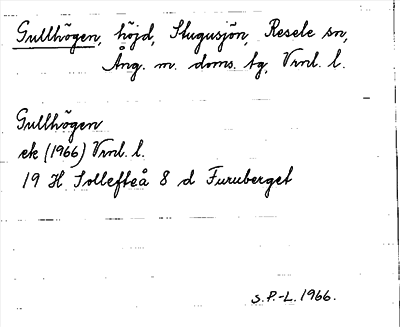 Gullhögen, höjd, Stugusjön, Resele sn,
Ång. m. doms. tg, Vrnl. l.
Gullhögen
ek (1966) Vrnl. l.
19 H Sollefteå 8 d Furuberget
S.P.-L. 1966.